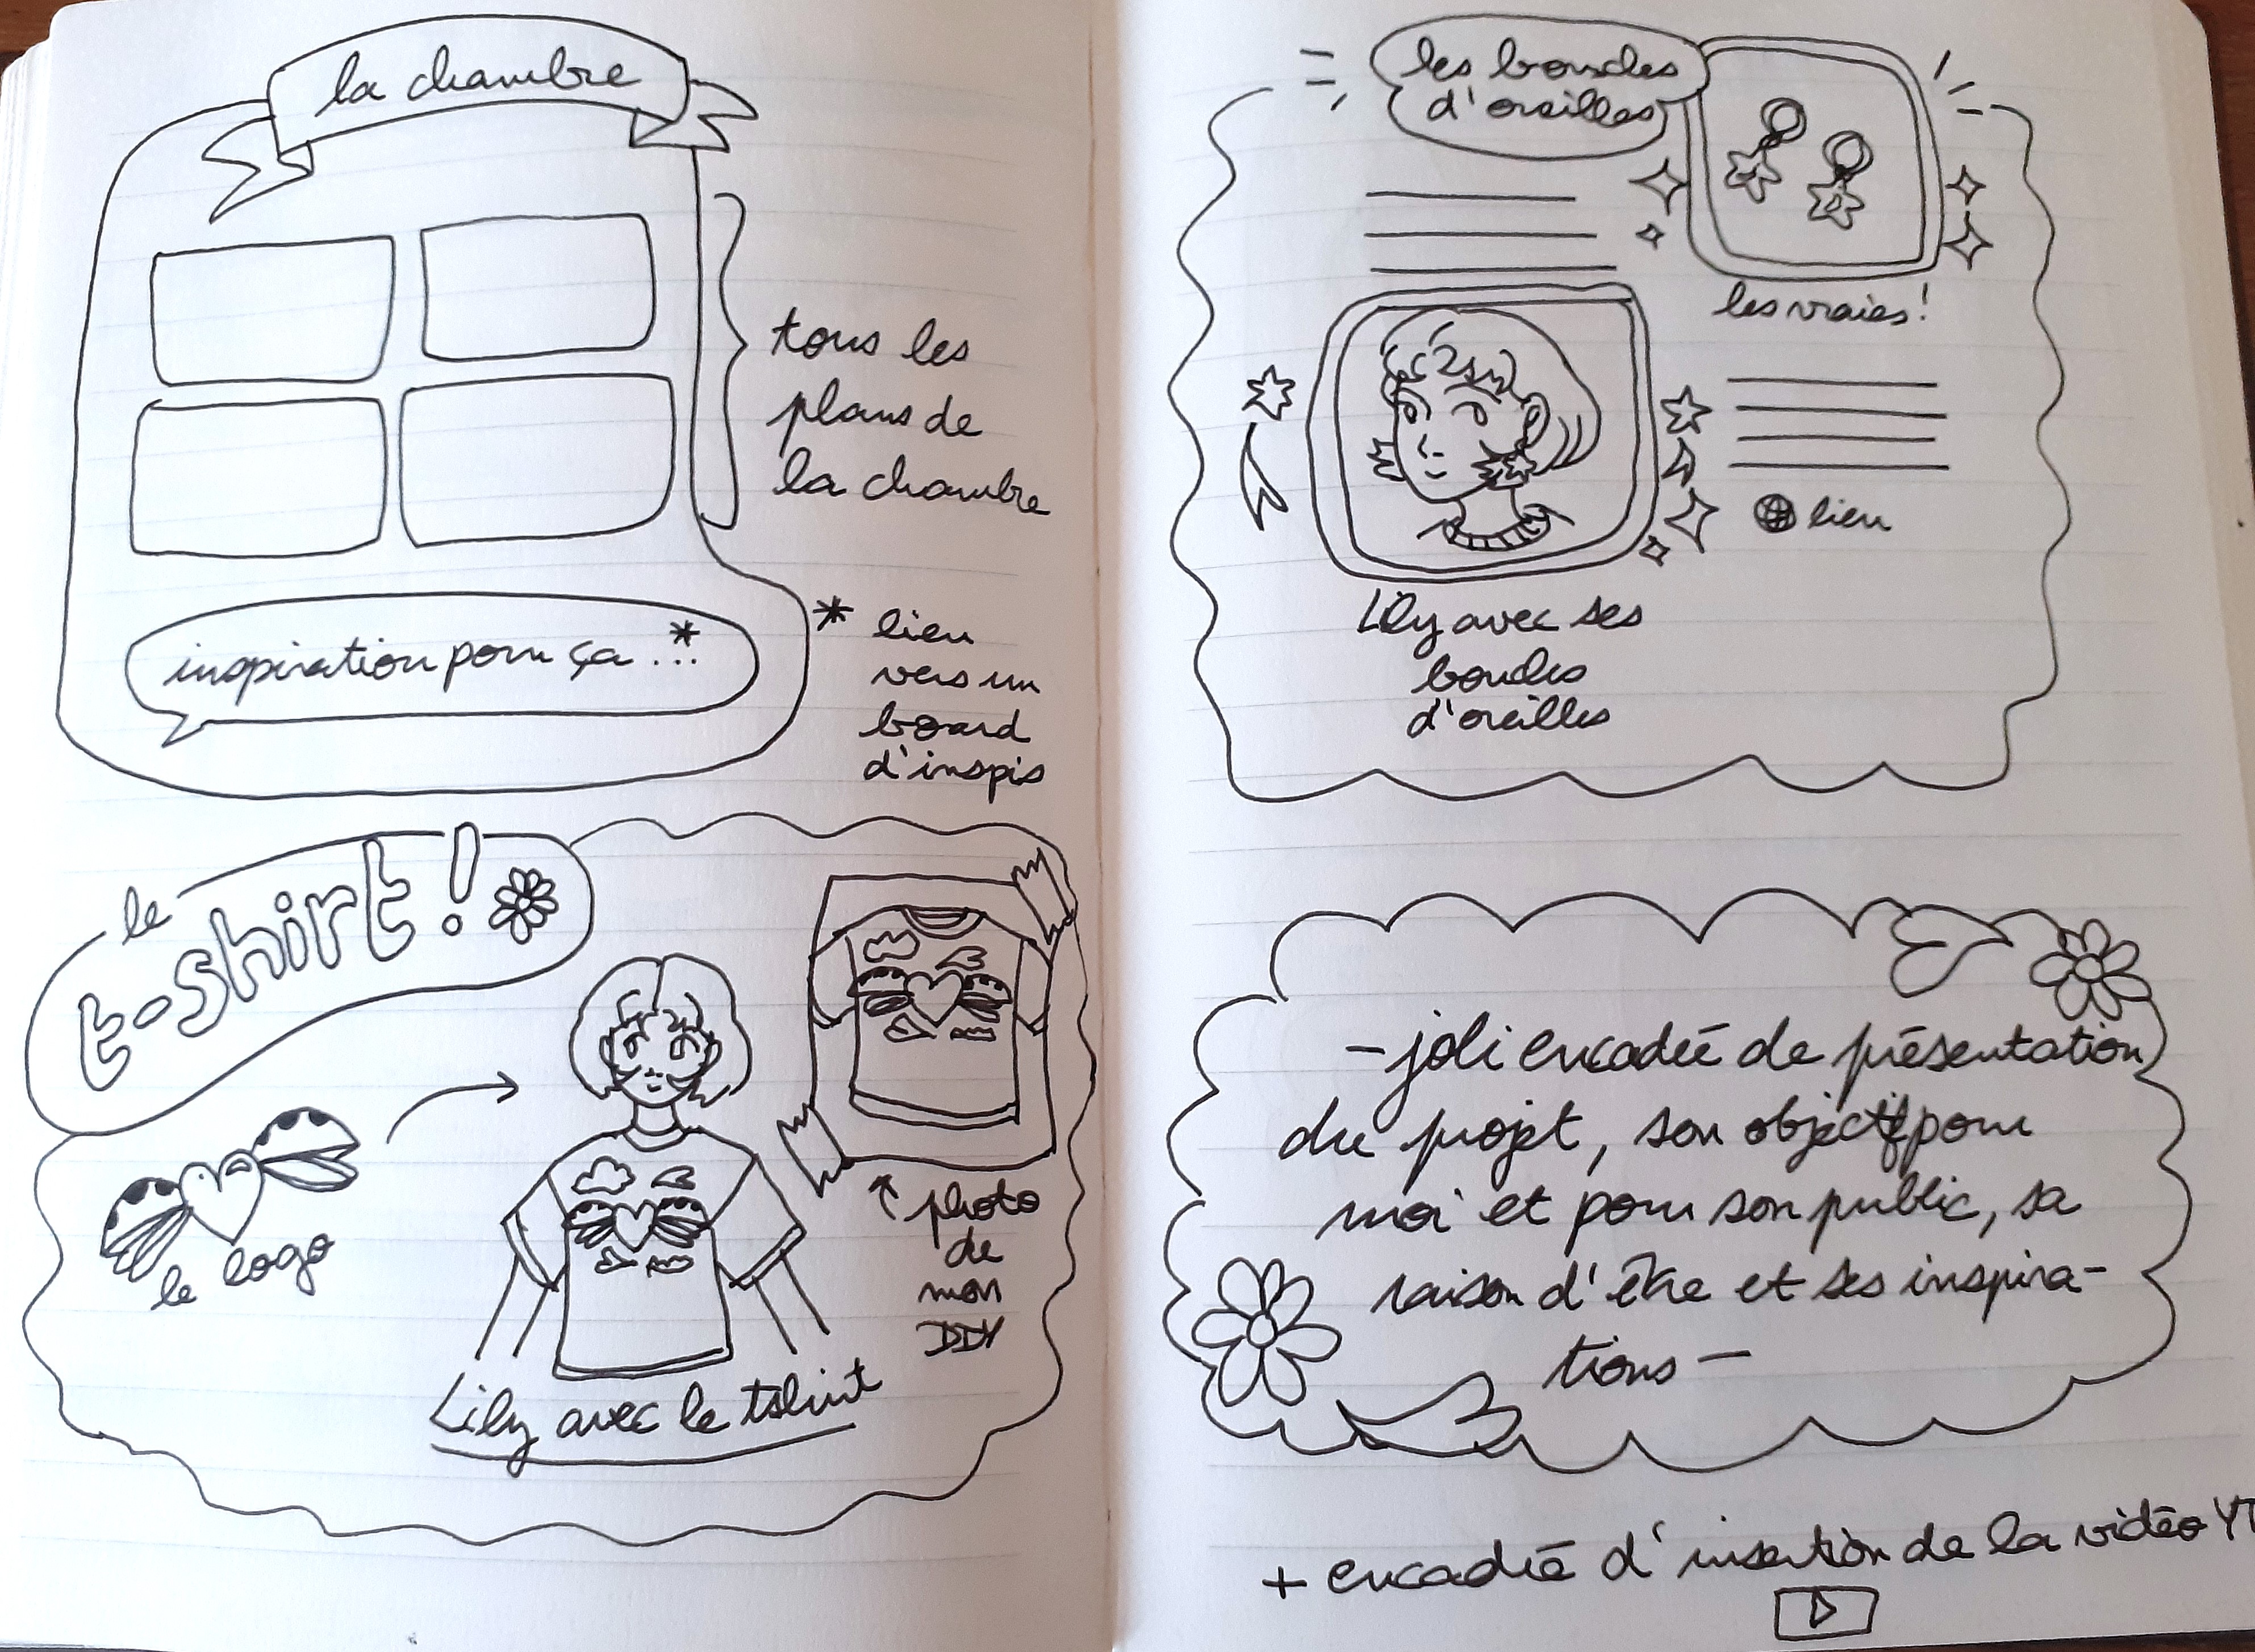 la chambre
tous les
plans de
la chambre
inspiration pour ça...*
* lien
vers un
board
d'inspis
le
t-shirt!
le logo
photo
de
mon
Lily avec le tshirt
les boucles
d'oreilles
les vraies!
lien
Lily avec ses
boucles
d'oreilles
- joli encadré de présentation
du projet, son objectif pour
moi et pour son public, sa
raison d'être et ses inspira-
tions -
+ encadré d'insertion de la vidéo YT